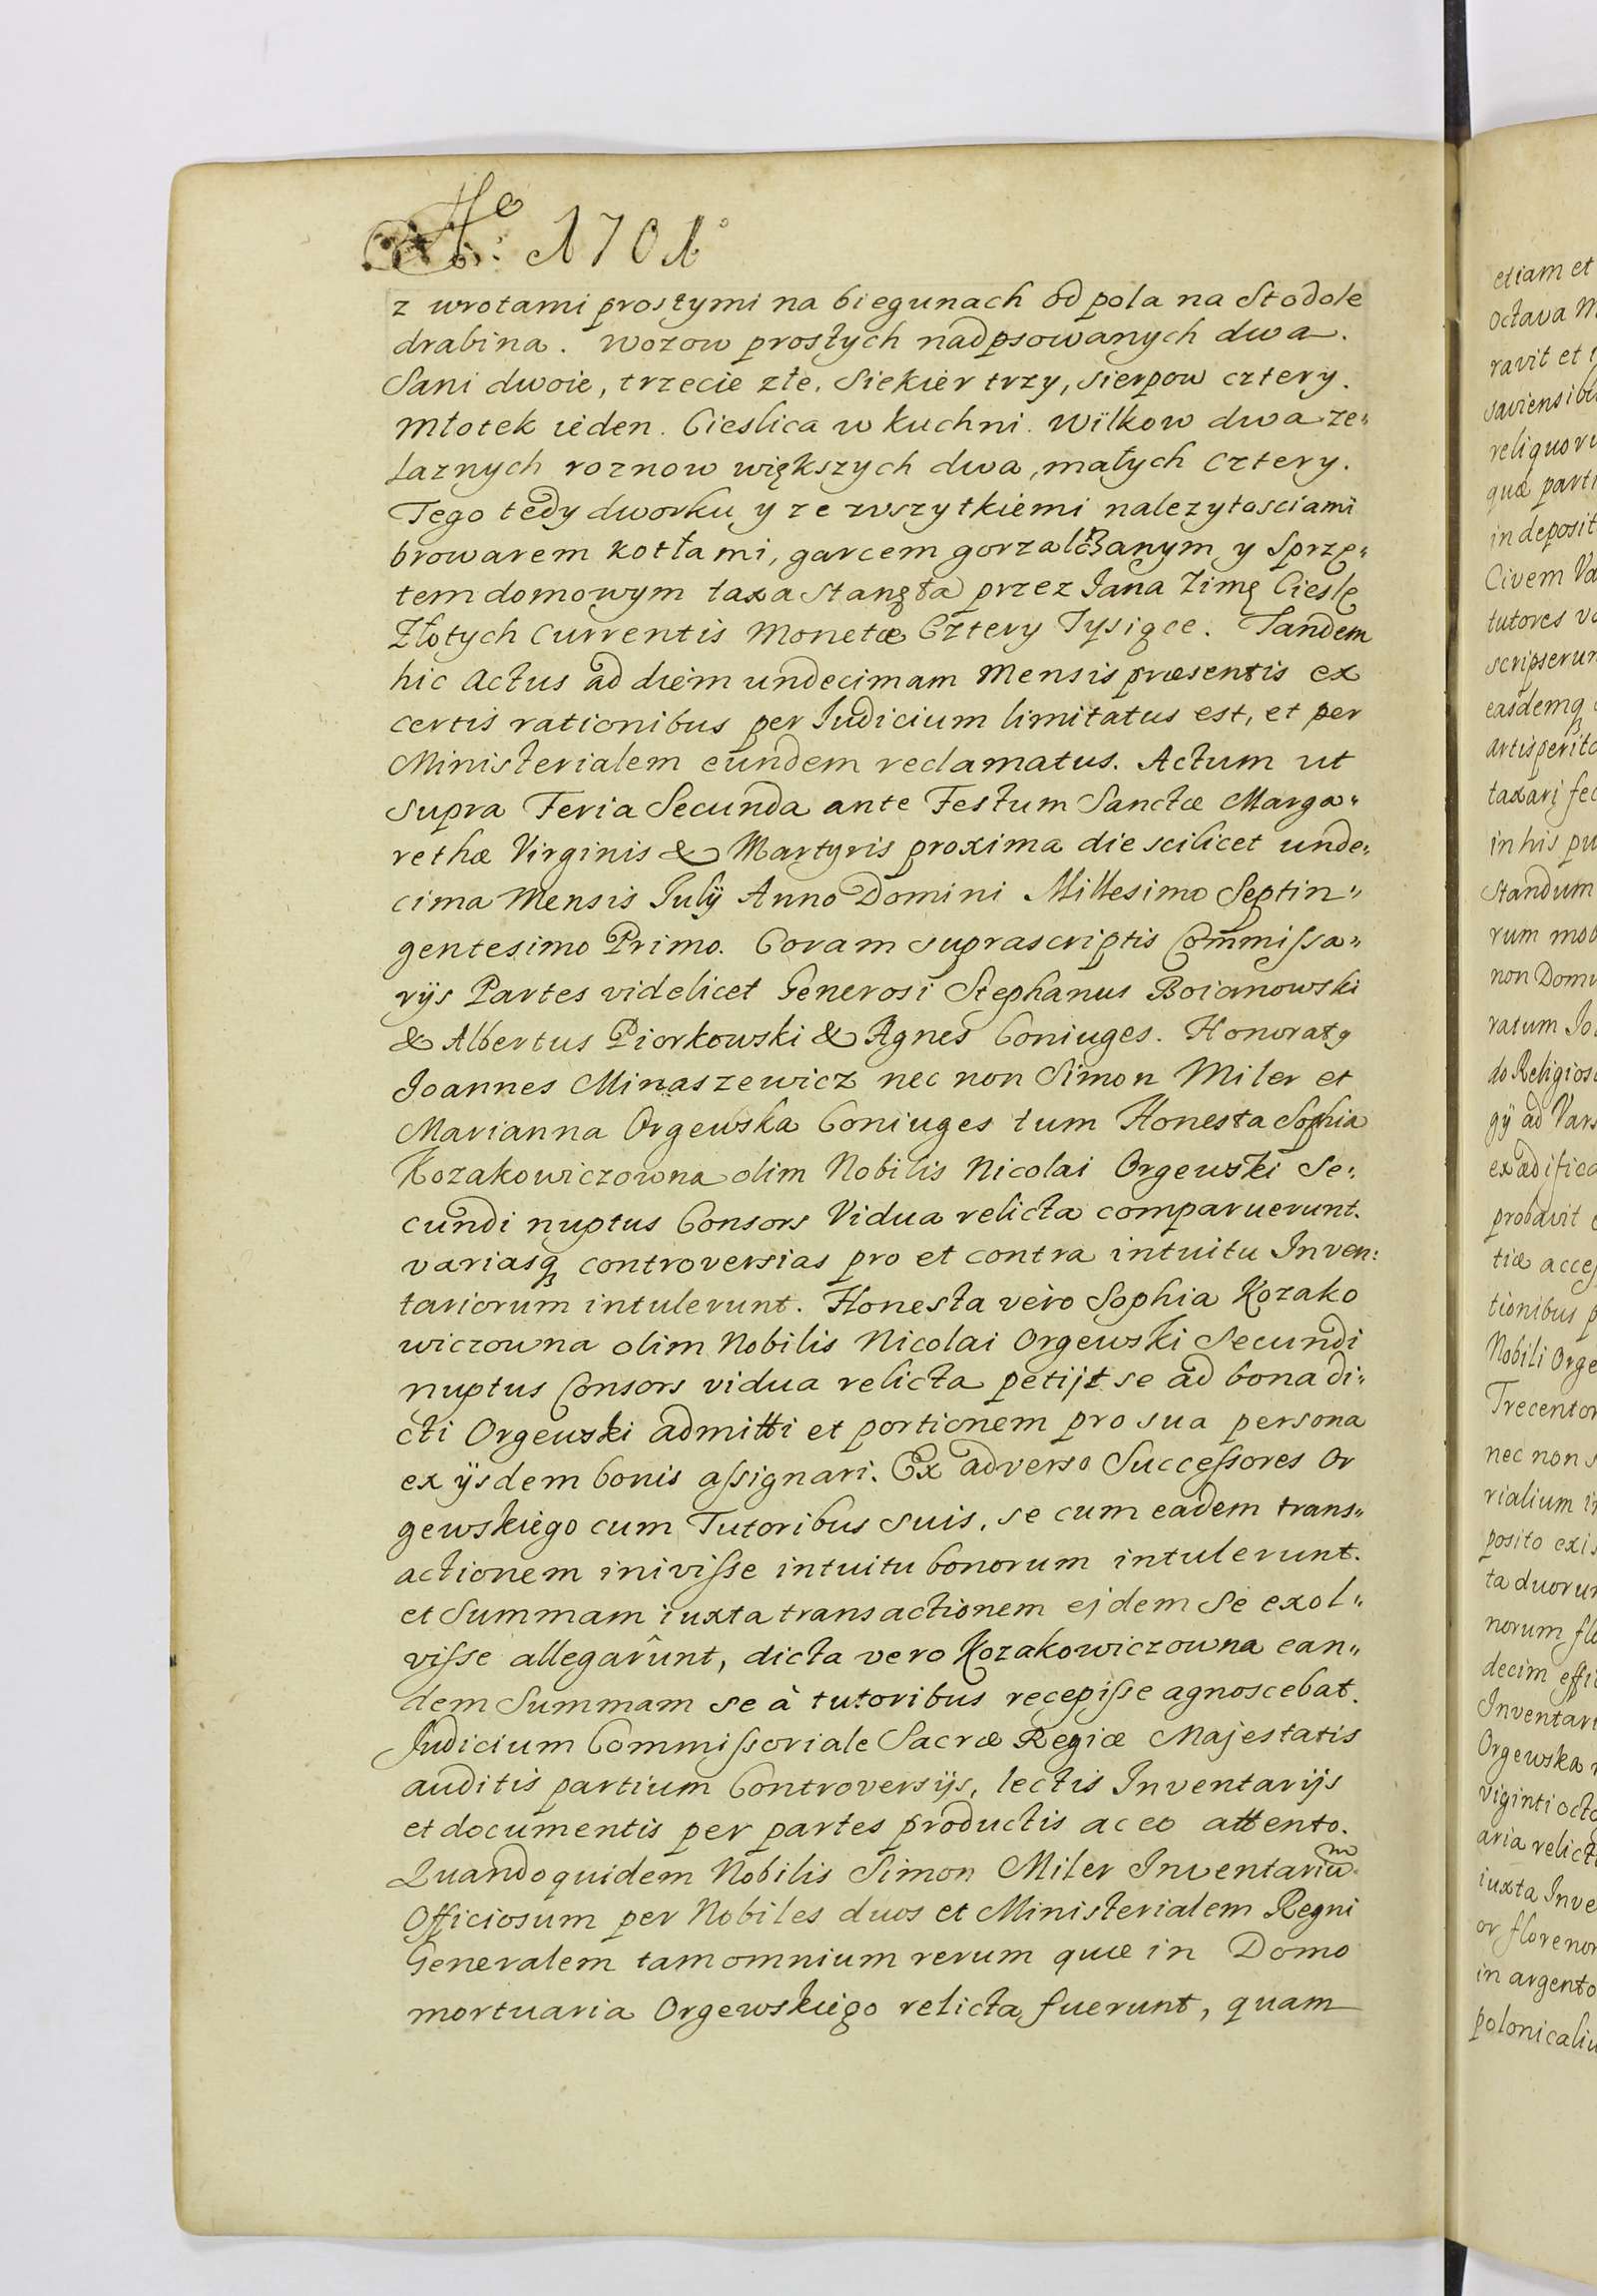 Aº 1701º
z wrotami prostymi na biegunach od pola na Stodole
drabina. wozow prostych nadpsowanych dwa.
Sani dwoie, trzecie złe. Siekier trzy, sierpow cztery.
Młotek ieden. Cieslica w kuchni. Wilkow dwa ze„
laznych roznow większych dwa, małych cztery.
Tego tedy dworku y ze wszytkiemi nalezytosciami
browarem kotłami, garcem gorzalczanym y Sprzę„
tem domowym taxa stanęła przez Jana Zimę Cieslę
Złotych Currentis Monetæ Cztery Tysiące. Tandem
hic Actus ad diem undecimam Mensis præsentis ex
certis rationibus per Judicium limitatus est, et per
Ministerialem eundem reclamatus. Actum ut
supra Feria Secunda ante Festum Sanctæ Marga„
rethæ Virginis & Martyris proxima die scilicet unde„
cima Mensis July Anno Domini Millesimo Septin„
gentesimo Primo. Coram suprascriptis Com̃issa„
rys Partes videlicet Generosi Stephanus Boianowski
& Albertus Piorkowski & Agnes Coniuges. Honoratq
Joannes Minaszewicz nec non Simon Miler et
Marianna Orgewska Coniuges tum Honesta Sophia
Kozakowiczowna olim Nobilis Nicolai Orgewski Se:
cundi nuptus Consors Vidua relicta comparuerunt.
variasq controversias pro et contra intuitu Inven:
tariorum intulerunt. Honesta vèro Sophia Kozako
wiczowna olim Nobilis Nicolai Orgewski Secundi
nuptus Consors vidua relicta petijt se ad bona di„
cti Orgewski admitti et portionem pro sua persona
ex ijsdem bonis assignari. Ex adverso Successores Or
gewskiego cum Tutoribus suis, se cum eadem trans„
actionem inivisse intuitu bonorum intulerunt.
et Summam iuxta transactionem ejdem Se exol„
visse allegarûnt, dicta vero Kozakowiczowna ean„
dem Summam se à tutoribus recepisse agnoscebat.
Judicium Commissoriale Sacræ Regiæ Majestatis
auditis partium Controversijs, lectis Inventarijs
et documentis per partes productis ac eo attento.
Quandoquidem Nobilis Simon Miler Inventariuᵐ
Officiosum per Nobiles duos et Ministerialem Regni
Generalem tam omnium rerum quæ in Domo
mortuaria Orgewskiego relicta fuerunt, quam
etiam et
octava M
ravit et
saviensib
reliquoru
quæ parti
in deposit
Civem Va
tutores v
scripserun
easdemq
artisperito
taxari fec
in his pu
standum
rum mob
non Domi
ratum Jo
do Religios
gij ad Vars
exædifica
probavit
tiæ acces
tionibus p
Nobili Orge
Trecentor
nec non s
rialium i
posito exis
ta duorum
norum flo
decim effi
Inventari
Orgewska
viginti octo
aria relict
iuxta Inve
or florenor
in argento
polonicaliu